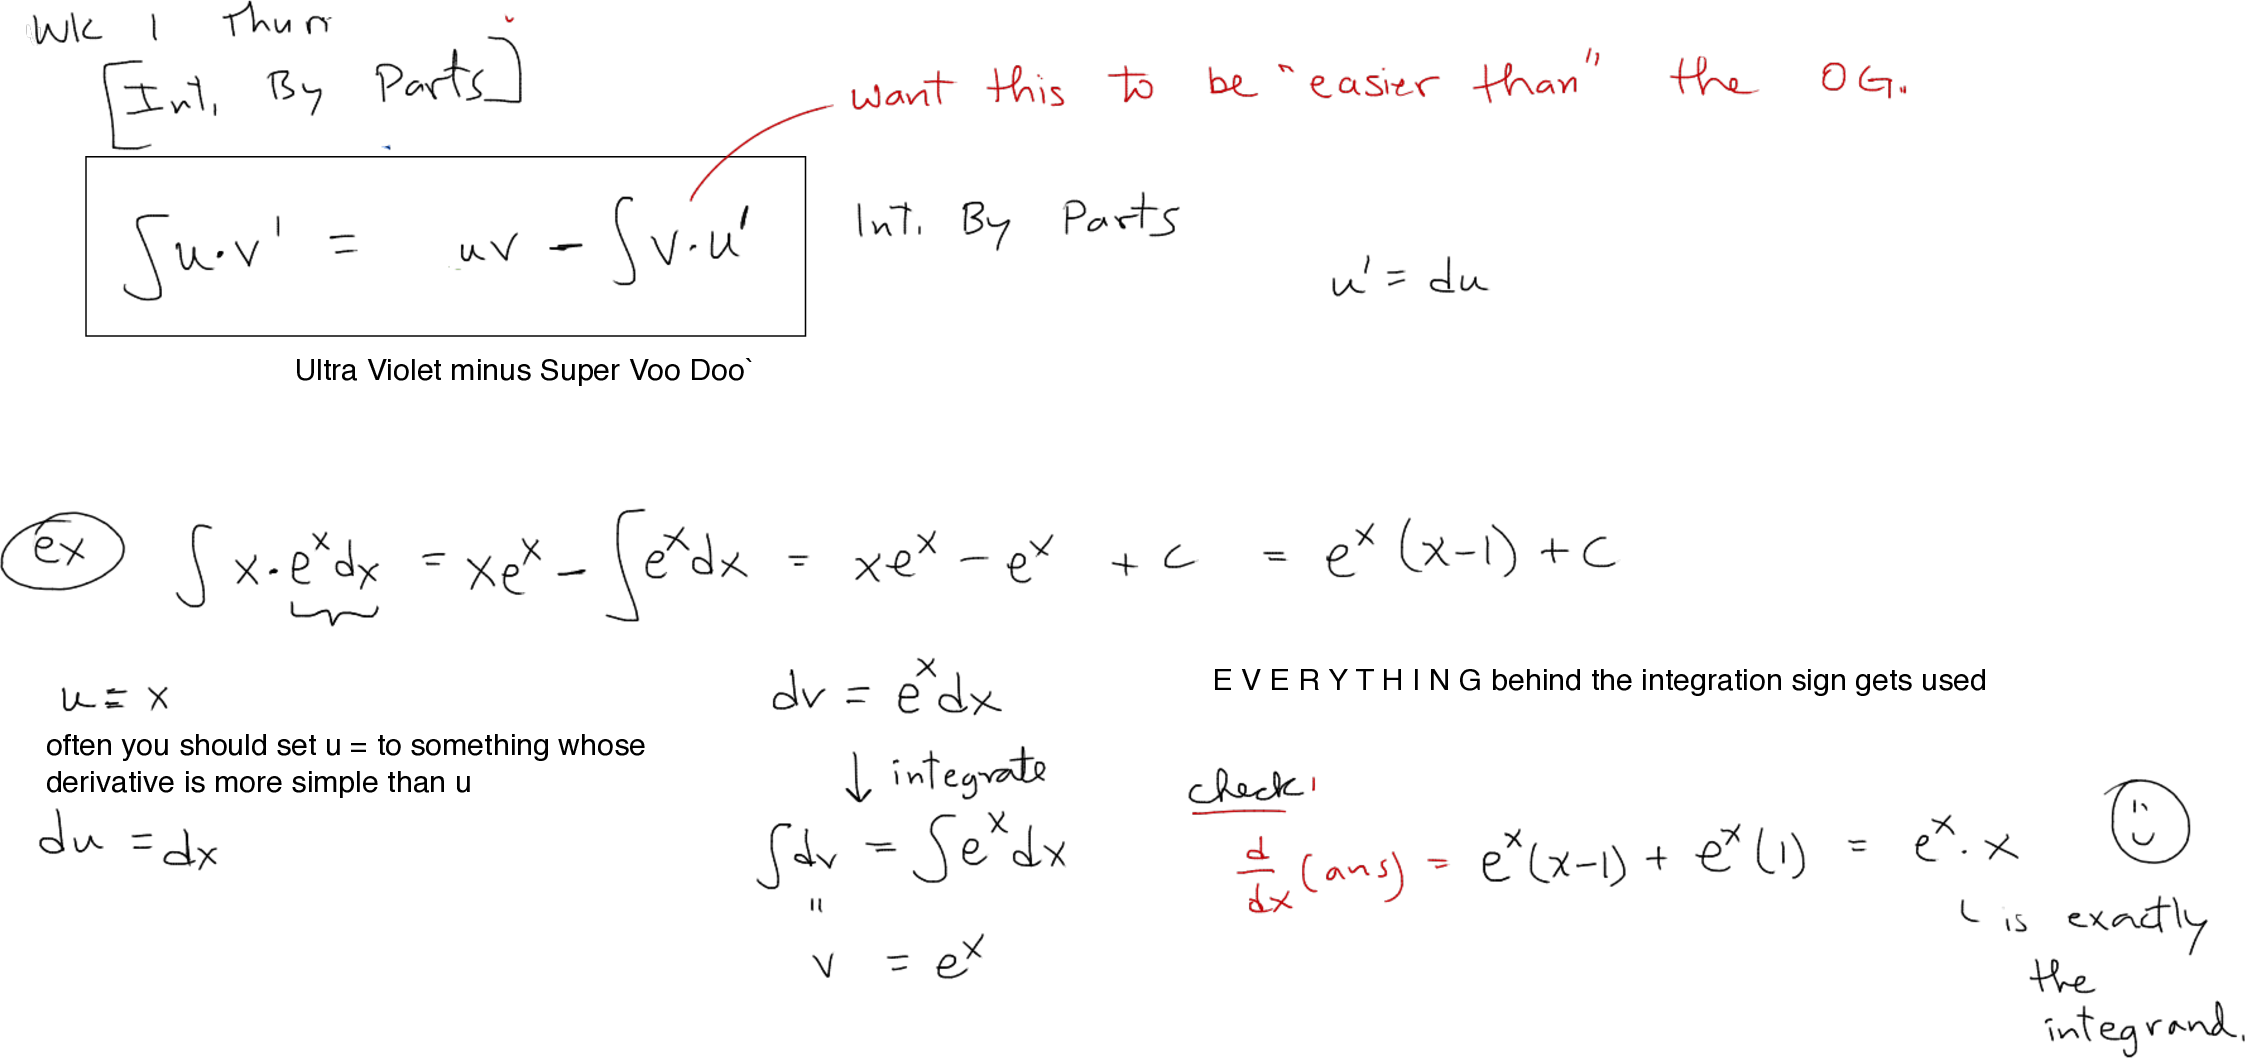 Wk 1 Thurs
[Int. By Parts]
want this to be "easier than" the OG.
∫u·v' = uv - ∫v·u'
Int. By Parts
u' = du
Ultra Violet minus Super Voo Doo`
ex ∫ x·e^x dx = xe^x - ∫e^x dx = xe^x - e^x + c = e^x (x-1) + c
u = x
often you should set u = to something whose
derivative is more simple than u
du = dx
dv = e^x dx
↓ integrate
∫dv = ∫e^x dx
"
v = e^x
E V E R Y T H I N G behind the integration sign gets used
check:
d/dx (ans) = e^x(x-1) + e^x(1) = e^x·x
is exactly
the
integrand.